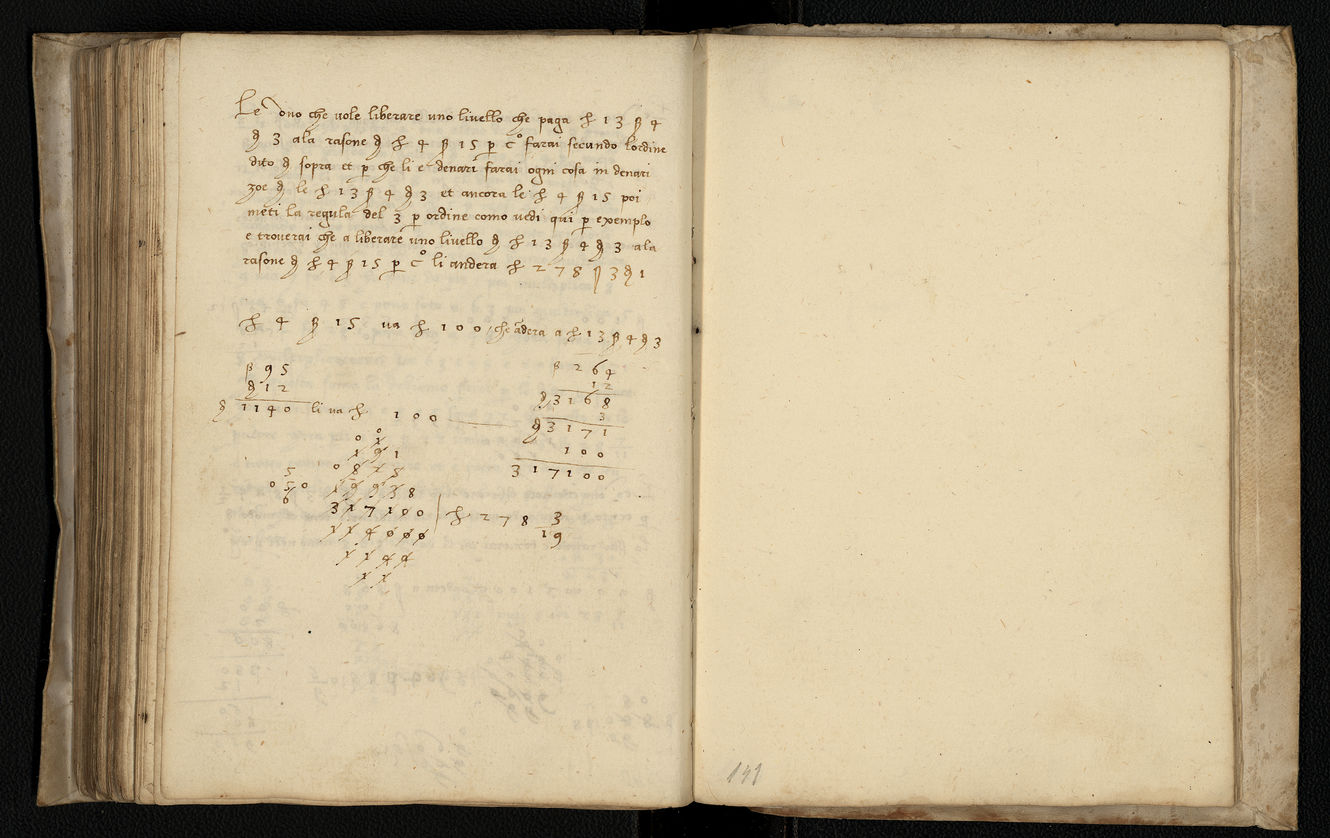 Le Uno che vole liberare uno livello che paga ħ 13 ß 4
ꝺ 3 ala rasone ꝺ ħ 4 ß 15 ꝑ c° farai secundo lordine
dito ꝺ sopra et ꝑ che li e denari farai ogni cosa in denari
zoe ꝺ le ħ 13 ß 4 ꝺ 3 et ancora le ħ 4 ß 15 poi
meti la regula del 3 ꝑ ordine como vedi qui ꝑ exemplo
e troverai che a liberare uno livello ꝺ ħ 13 ß 4 ꝺ 3 ala
rasone ꝺ ħ 4 ß 15 ꝑ c° li andera ħ 278 ß 3 ꝺ 1
ħ 4 ß 15 va ħ 100 che ādera a ħ 13 ß 4 ꝺ 3
ß 95
ꝺ 12
ꝺ 1140 li va ħ 100
ß 264
12
ꝺ 3168
3
ꝺ 3171
100
317100
317100 | ħ 278 3
19